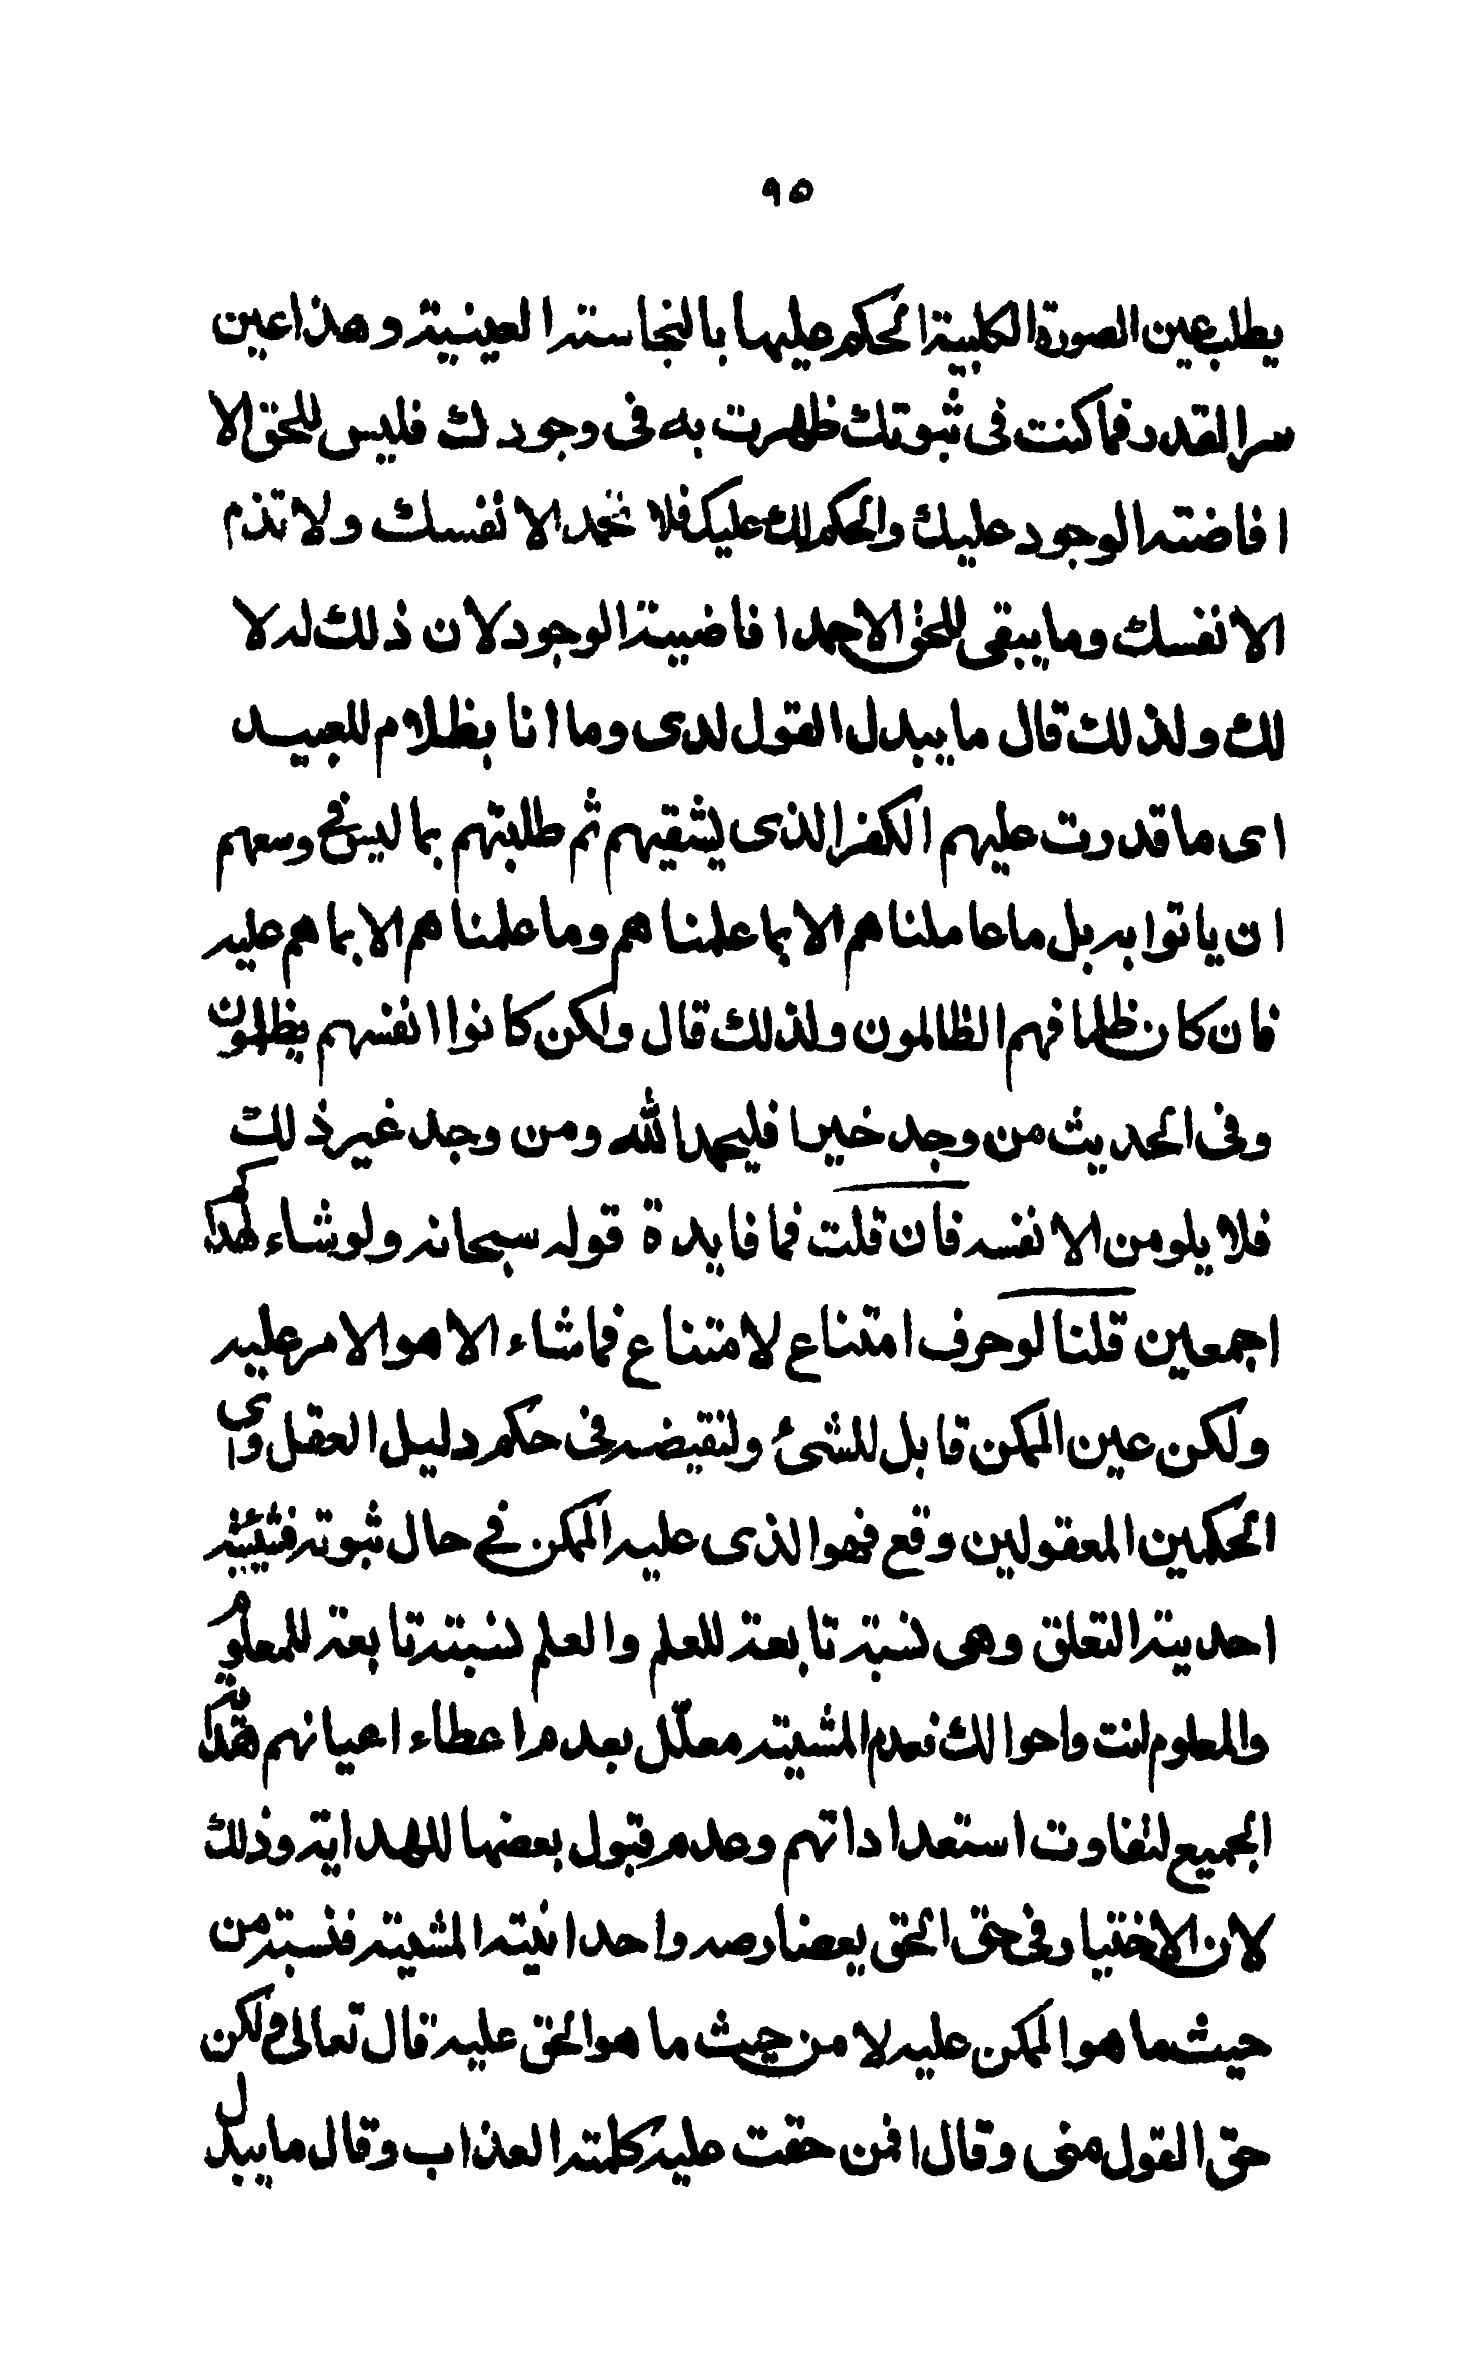 ٩٥
يطلب عين الصورة الكلبية الحكم عليها بالنجاسته العينية وهذا عين
سر القدر فما كنت فى ثبوتك ظهرت به فى وجودك فليس للحق الا
افاضته الوجود عليك والحكم لك عليك فلا تحمد الا نفسك ولا تذم
الا نفسك وما يبقى للحق الا حمد افاضية الوجود لان ذلك له لا
لك ولذلك قال ما يبدل القول لدى وما انا بظلام للعبيد
اى ما قدرت عليهم الكفر الذى يشقيهم ثم طلبتهم بما ليس فى وسعهم
ان ياتوا به بل ما عاملناهم الا بما علمناهم وما علمناهم الا بما هم عليه
فان كان ظلما فهم الظالمون ولذلك قال ولكن كانوا انفسهم يظلمون
وفى الحديث من وجد خيرا فليحمد الله ومن وجد غير ذلك
فلا يلومن الا نفسه فان قلت فما فايدة قوله سبحانه ولو شاء لهداكم
اجمعين قلنا لو حرف امتناع لامتناع فما شاء الا هو الامر عليه
ولكن عين الممكن قابل للشئ ولنقيضه فى حكم دليل العقل واى
الحكمين المعقولين وقع فهو الذى عليه الممكن فى حال ثبوته فمشيئته
احدية التعلق وهى نسبة تابعة للعلم والعلم نسبته تابعة للمعلوم
والمعلوم انت واحوالك فعدم المشيته معلّل بعدم اعطاء اعيانهم هداية
الجميع لتفاوت استعداداتهم وعدم قبول بعضها للهداية وذلك
لان الاختيار فى حق الحق يعضارصه واحدانيته المشيته فنسبته من
حيث ما هو الممكن عليه لا من حيث ما هو الحق عليه قال تعالى ولكن
حق القول منى وقال افمن حقت عليه كلمته العذاب وقال ما يبدل